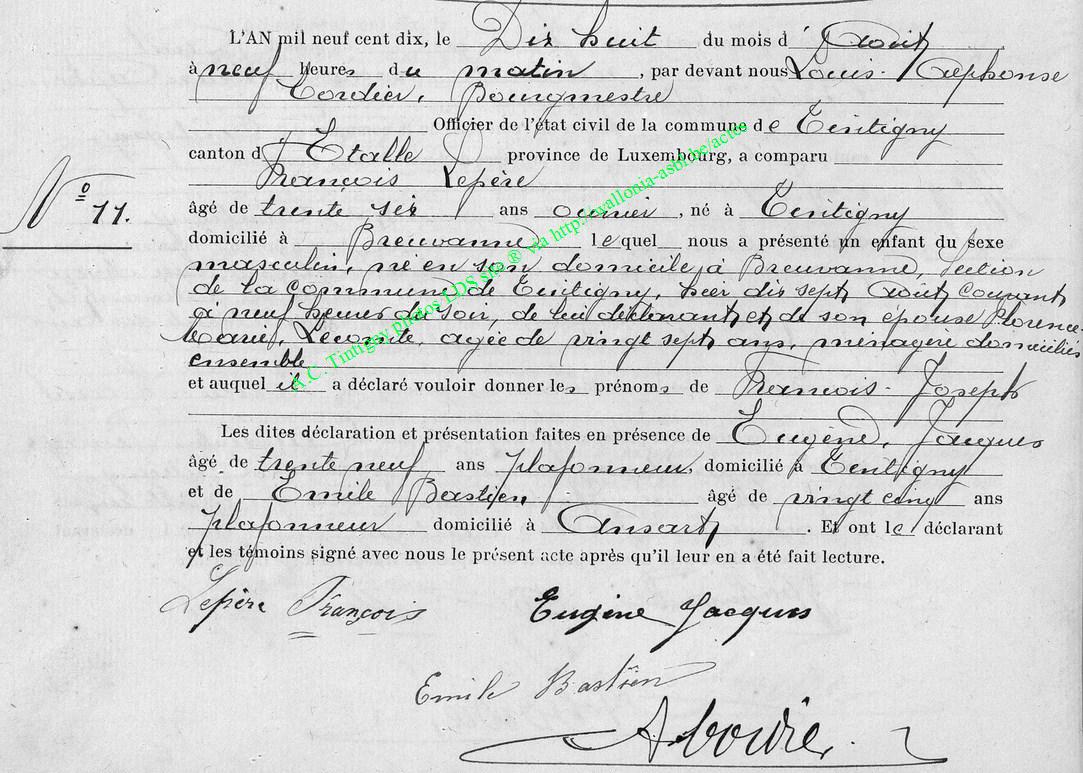 L'AN mil neuf cent dix, le Dix huit du mois d' Août
à neuf Heures du matin, par devant nous Louis-Alphonse
Cordier, Bourgmestre
Officier de l'état civil de la commune de Tintigny
canton d' Etalle province de Luxembourg, a comparu
François Lepère
N° 11.
âgé de trente six ans ouvrier, né à Tintigny
domicilié à Breuvanne lequel nous a présenté un enfant du sexe
masculin, né en son domicile, à Breuvanne, Section
de la commune de Tintigny, hier dix sept Août courant
à neuf heures du soir, de lui déclarant et de son épouse Florence
Marie, Lecomte, agée de vingt sept ans, ménagère domiciliés
ensemble
et auquel il a déclaré vouloir donner les prénoms de François-Joseph
Les dites déclaration et présentation faites en présence de Eugène, Jacques
âgé de trente neuf ans plafonneur, domicilié à Tintigny
et de Emile Bastien âgé de vingt cinq ans
plafonneur domicilié à Ansart. Et ont le déclarant
et les témoins signé avec nous le présent acte après qu'il leur en a été fait lecture.
Lepère François Eugène Jacques
Emile Bastien
A Cordier.
A.C. Tintigny photos LDS site ® via http://wallonia-asbl.be/actes